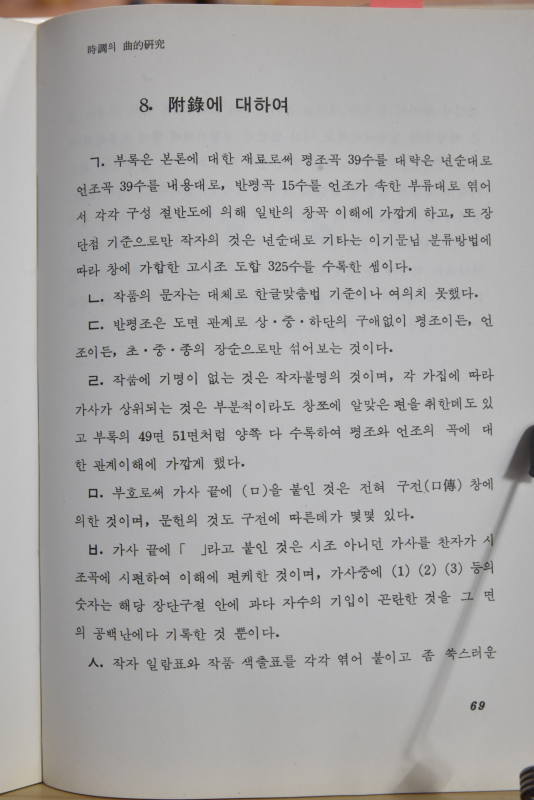 時調의 曲的硏究
8. 附錄에 대하여
ㄱ. 부록은 본론에 대한 재료로써 평조곡 39수를 대략은 년순대로
언조곡 39수를 내용대로, 반평곡 15수를 언조가 속한 부류대로 엮어
서 각각 구성 절반도에 의해 일반의 창곡 이해에 가깝게 하고, 또 장
단점 기준으로만 작자의 것은 년순대로 기타는 이기문님 분류방법에
따라 창에 가합한 고시조 도합 325수를 수록한 셈이다.
ㄴ. 작품의 문자는 대체로 한글맞춤법 기준이나 여의치 못했다.
ㄷ. 반평조은 도면 관계로 상・중・하단의 구애없이 평조이든, 언
조이든, 초・중・종의 장순으로만 섞어보는 것이다.
ㄹ. 작품에 기명이 없는 것은 작자불명의 것이며, 각 가집에 따라
가사가 상위되는 것은 부분적이라도 창쪼에 알맞은 편을 취한데도 있
고 부록의 49면 51면처럼 양쪽 다 수록하여 평조와 언조의 곡에 대
한 관계이해에 가깝게 했다.
ㅁ. 부호로써 가사 끝에 (ㅁ)을 붙인 것은 전혀 구전(口傳) 창에
의한 것이며, 문헌의 것도 구전에 따른데가 몇몇 있다.
ㅂ. 가사 끝에 「　」라고 붙인 것은 시조 아니던 가사를 찬자가 시
조곡에 시편하여 이해에 편케한 것이며, 가사중에 (1) (2) (3) 등의
숫자는 해당 장단구절 안에 과다 자수의 기입이 곤란한 것을 그 면
의 공백난에다 기록한 것 뿐이다.
ㅅ. 작자 일람표와 작품 색출표를 각각 엮어 붙이고 좀 쑥스러운
69